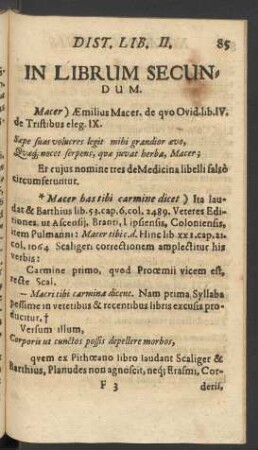 DIST. LIB. II. 85
IN LIBRUM SECUN-
DUM.
Macer) Æmilius Macer. de qvo Ovid. lib. IV.
de Tristibus eleg. IX.
Sæpe suas volucres legit mihi grandior ævo,
Qvæq; nocet serpens, qva juvat herba, Macer;
Et cujus nomine tres de Medicina libelli falsò
circumferuntur.
* Macer has tibi carmine dicet) Ita lau-
dat & Barthius lib. 53. cap. 6. col. 2489. Veteres Edi-
tiones, ut Ascensij, Branti, Lipsiensis, Coloniensis,
item Pulmanni: Macer tibi c. d. Hinc lib. xx. cap. 21.
col. 1064 Scaligeri correctionem amplectitur his
verbis:
Carmine primo, qvod Prœmii vicem est,
recte Scal.
– Macri tibi carmina dicent. Nam prima Syllaba
pessime in vetetibus & recentibus libris excusis pro-
ducitur. †
Versum illum,
Corporis ut cunctos possis depellere morbos,
qvem ex Pithœano libro laudant Scaliger &
Barthius, Planudes non agnoscit, neq; Erasmi, Cor-
F 3 derii,